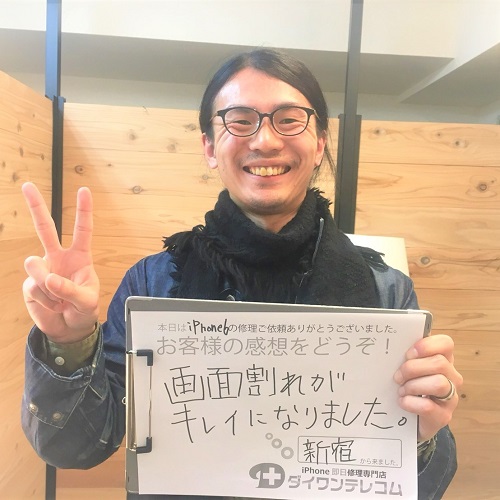 本日はiPhone6の修理ご依頼ありがとうございました。
お客様の感想をどうぞ！
画面割れが
キレイになりました。
新宿から来ました。
iPhone 即日修理専門店
ダイワンテレコム